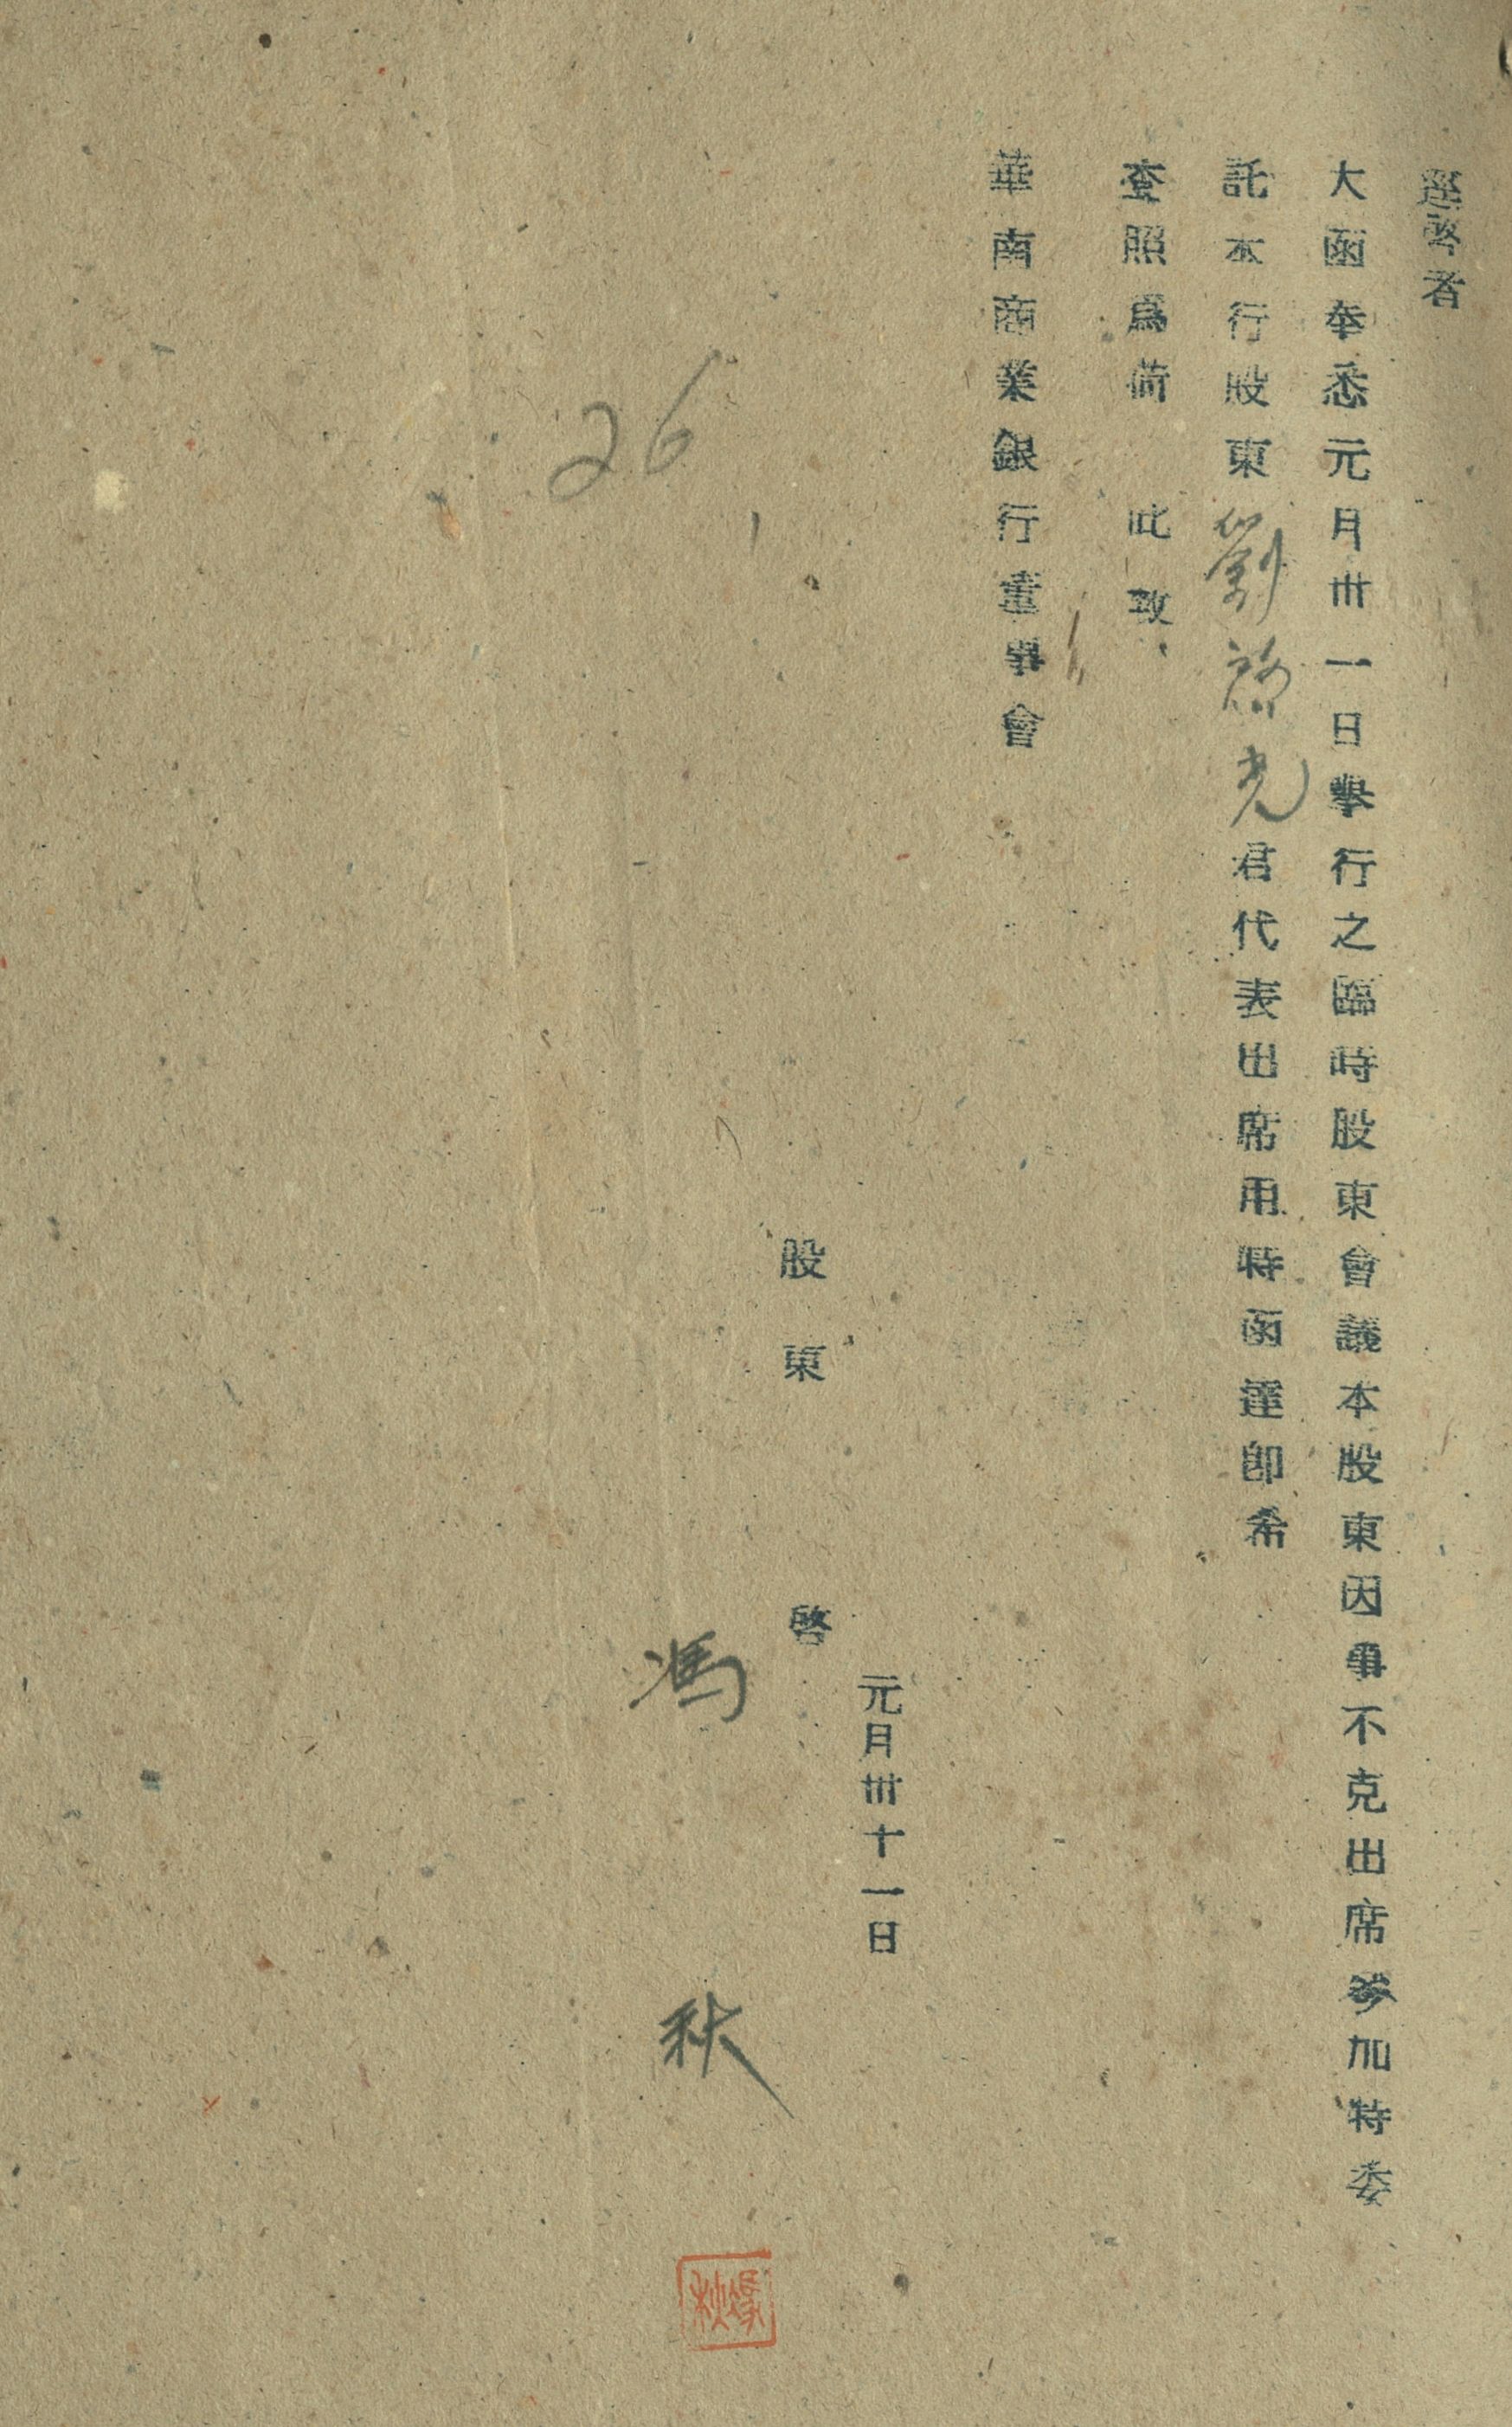 逕啓者
大函奉悉元月卅一日舉行之臨時股東會議本股東因事不克出席參加特委
託本行股東劉啓光君代表出席用特函達卽希
查照爲荷 此致
華南商業銀行董事會
元月卅十一日
股東 啓
馮 秋
26
馮秋